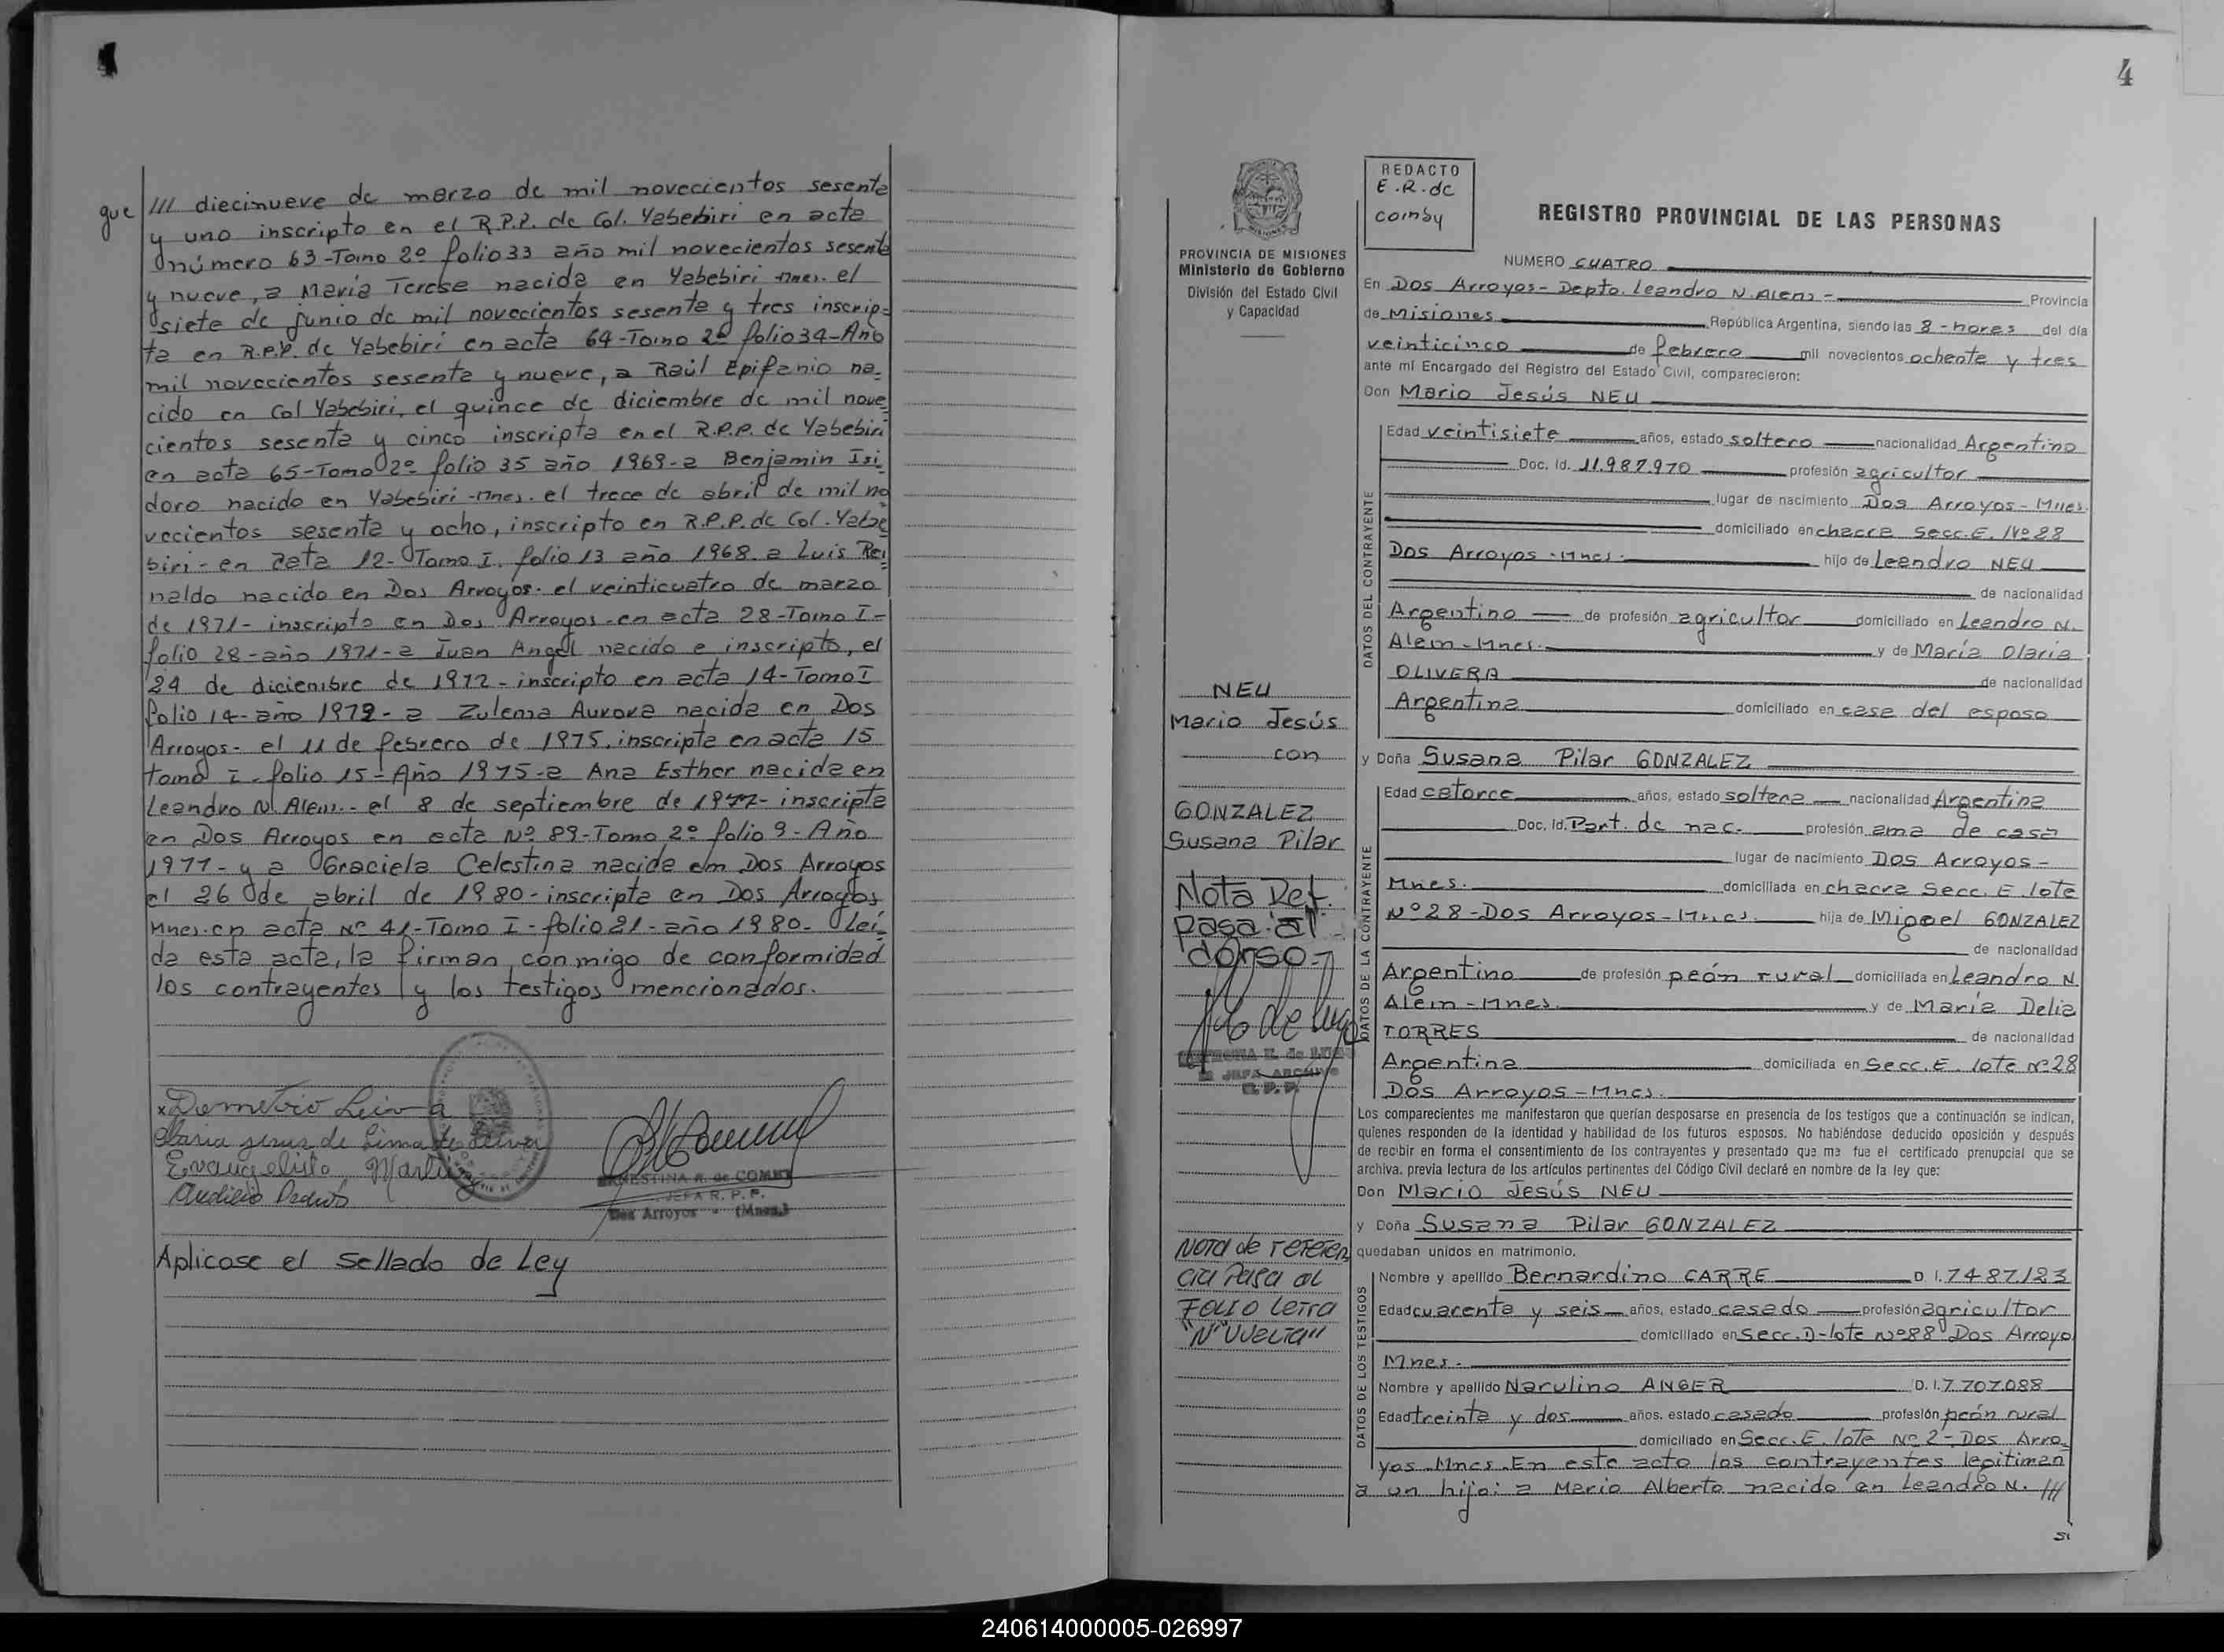 4
que /// diecinueve de marzo de mil novecientos sesenta
y uno inscripto en el R.P.P. de Col. Yabebiri en acta
número 63-Tomo 2º folio 33 año mil novecientos sesenta
y nueve, a María Teresa nacida en Yabebiri Mnes. el
siete de junio de mil novecientos sesenta y tres inscrip=
ta en R.P.P. de Yabebiri en acta 64-Tomo 2º folio 34-Año
mil novecientos sesenta y nueve, a Raúl Epifanio na-
cido en Col Yabebiri, el quince de diciembre de mil nove
cientos sesenta y cinco inscripta en el R.P.P. de Yabebiri
en acta 65-Tomo 2º folio 35 año 1969-a Benjamin Isi-
doro nacido en Yabebiri-Mnes. el trece de abril de mil no
vecientos sesenta y ocho, inscripto en R.P.P. de Col. Yabe
biri-en acta 12-Tomo I. folio 13 año 1968. a Luis Rei
naldo nacido en Dos Arroyos. el veinticuatro de marzo
de 1971- inscripto en Dos Arroyos-en acta 28-Tomo I-
folio 28-año 1971-a Juan Angel nacido e inscripto, el
24 de diciembre de 1972-inscripto en acta 14-Tomo I
folio 14-año 1972-a Zulema Aurora nacida en Dos
Arroyos- el 11 de febrero de 1975. inscripta en acta 15
tomo I-folio 15-Año 1975-a Ana Esther nacida en
Leandro N. Alem.- el 8 de septiembre de 1977-inscripta
en Dos Arroyos en acta Nº 89-Tomo 2º folio 9-Año
1977-y a Graciela Celestina nacida em Dos Arroyos
el 26 de abril de 1980-inscripta en Dos Arroyos
Mnes. en acta Nº 41-Tomo I-folio 21-año 1980- Leí-
da esta acta, la firman conmigo de conformidad
los contrayentes y los testigos mencionados.
x Demetrio Leiva
Maria de Lima de
Evangelista Martin
ERNESTINA R. de COMBY
JEFA R. P. P.
Dos Arroyos - (Mnes.)
Aplicose el sellado de Ley
4
PROVINCIA DE MISIONES
Ministerio de Gobierno
División del Estado Civil
y Capacidad
REDACTO
E.R. de
Comby
REGISTRO PROVINCIAL DE LAS PERSONAS
NUMERO CUATRO
En Dos Arroyos-Depto. Leandro N. Alem- Provincia
de Misiones República Argentina, siendo las 8-horas del día
veinticinco de febrero mil novecientos ochenta y tres
ante mí Encargado del Registro del Estado Civil, comparecieron:
Don Mario Jesús NEU
DATOS DEL CONTRAYENTE
Edad veintisiete años, estado soltero nacionalidad Argentino
Doc. Id. 11.987.970 profesión agricultor
lugar de nacimiento Dos Arroyos-Mnes.
domiciliado en chacra Secc. E. Nº 28
Dos Arroyos-Mnes. hijo de Leandro NEU
de nacionalidad
Argentino de profesión agricultor domiciliado en Leandro N.
Alem-Mnes. y de María Olaria
OLIVERA de nacionalidad
Argentina domiciliado en casa del esposo
y Doña Susana Pilar GONZALEZ
DATOS DE LA CONTRAYENTE
Edad catorce años, estado soltera nacionalidad Argentina
Doc. Id. Part. de nac. profesión ama de casa
lugar de nacimiento Dos Arroyos-
Mnes. domiciliada en chacra Secc. E. lote
Nº 28-Dos Arroyos-Mnes. hija de Migoel GONZALEZ
de nacionalidad
Argentino de profesión peón rural domiciliada en Leandro N.
Alem-Mnes. y de María Delia
TORRES de nacionalidad
Argentina domiciliada en Secc. E. lote nº 28
Dos Arroyos-Mnes.
Los comparecientes me manifestaron que querían desposarse en presencia de los testigos que a continuación se indican,
quienes responden de la identidad y habilidad de los futuros esposos. No habiéndose deducido oposición y después
de recibir en forma el consentimiento de los contrayentes y presentado que me fue el certificado prenupcial que se
archiva. previa lectura de los artículos pertinentes del Código Civil declaré en nombre de la ley que:
Don Mario Jesús NEU
y Doña Susana Pilar GONZALEZ
quedaban unidos en matrimonio.
DATOS DE LOS TESTIGOS
Nombre y apellido Bernardino CARRE D. I. 7487123
Edad cuarenta y seis años, estado casado profesión agricultor
domiciliado en Secc. D-lote Nº 88 Dos Arroyo
Mnes.
Nombre y apellido Narulino ANGER D. I. 7.707.088
Edad treinta y dos años, estado casado profesión peón rural
domiciliado en Secc. E. lote Nº 2-Dos Arro-
yos-Mnes. En este acto los contrayentes legitiman
a un hijo: a Mario Alberto nacido en Leandro N. ///
NEU
Mario Jesús
con
GONZALEZ
Susana Pilar
Nota Ref.
pasa al
dorso-
JEFA ARCHIVO
R. P. P.
Nota de referen
cia Pasa al
Folio letra
"N" Vuelta"
240614000005-026997